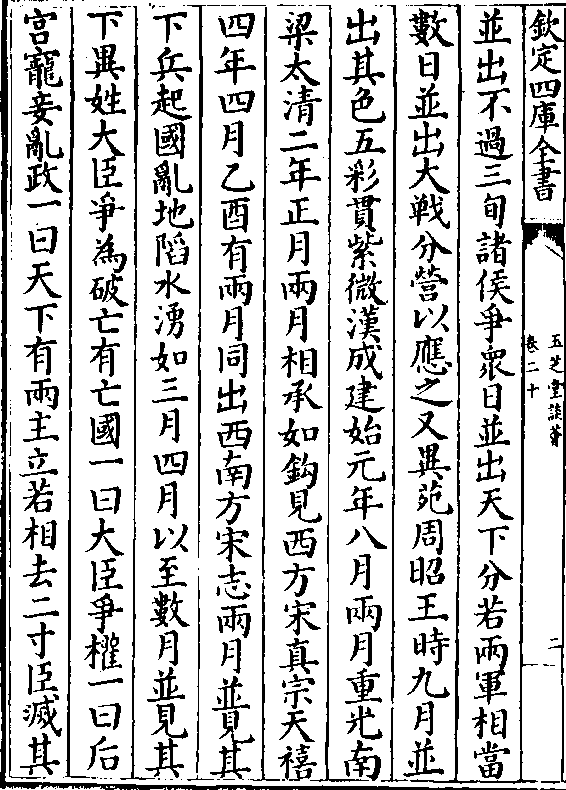 欽定四庫全書
五芝堂談薈
卷二十
二
並出不過三旬諸侯爭衆日並出天下分若兩軍相當
數日並出大戰分營以應之又異苑周昭王時九月並
出其色五彩貫紫微漢成建始元年八月兩月重光南
梁太清二年正月兩月相承如鈎見西方宋真宗天禧
四年四月乙酉有兩月同出西南方宋志兩月並見其
下兵起國亂地䧟水湧如三月四月以至數月並見其
下異姓大臣爭為破亡有亡國一曰大臣爭權一曰后
宫寵妾亂政一曰天下有兩主立若相去二寸臣滅其